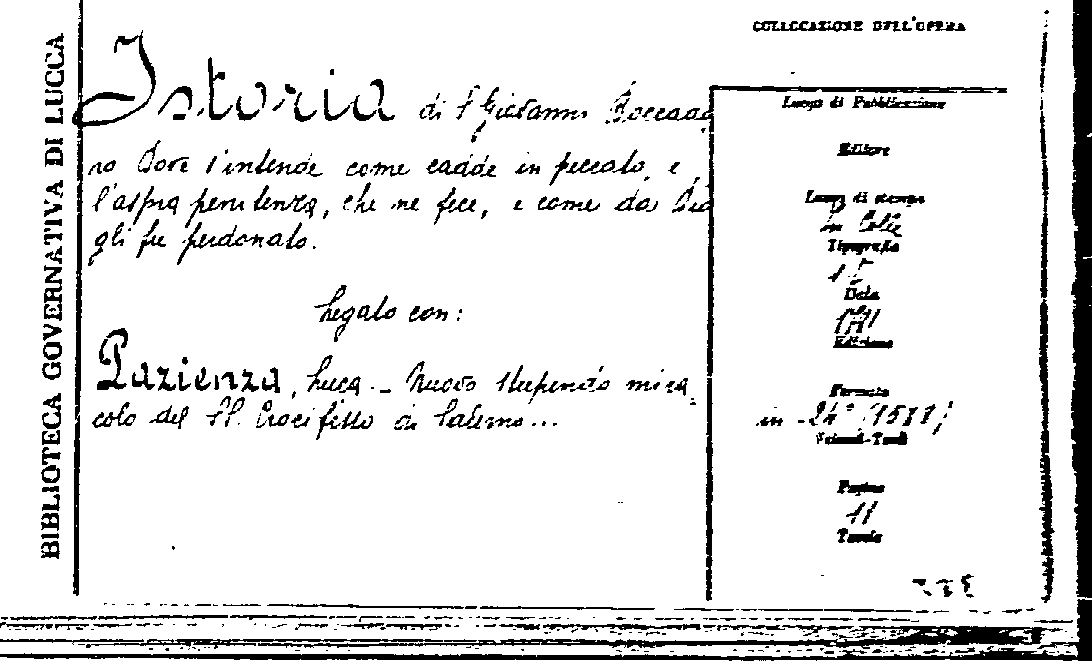 BIBLIOTECA GOVERNATIVA DI LUCCA
COLLOCAZIONE DELL'OPERA
Istoria di S Giovanni Boccado
ro Dove s'intende come cadde in peccato, e
l'aspra penitenza, che ne fece, e come da Dio
gli fu perdonato.
Legato con:
Pazienza, Luca. - Nuovo stupendo mira-
colo del SS. Crocifisso di Salerno...
Luogo di Pubblicazione
Editore
Luogo di stampa
in Colle
Tipografia
Data
Edizione
Formato
in - 24°
Volumi-Tomi
Pagine
11
Tavole